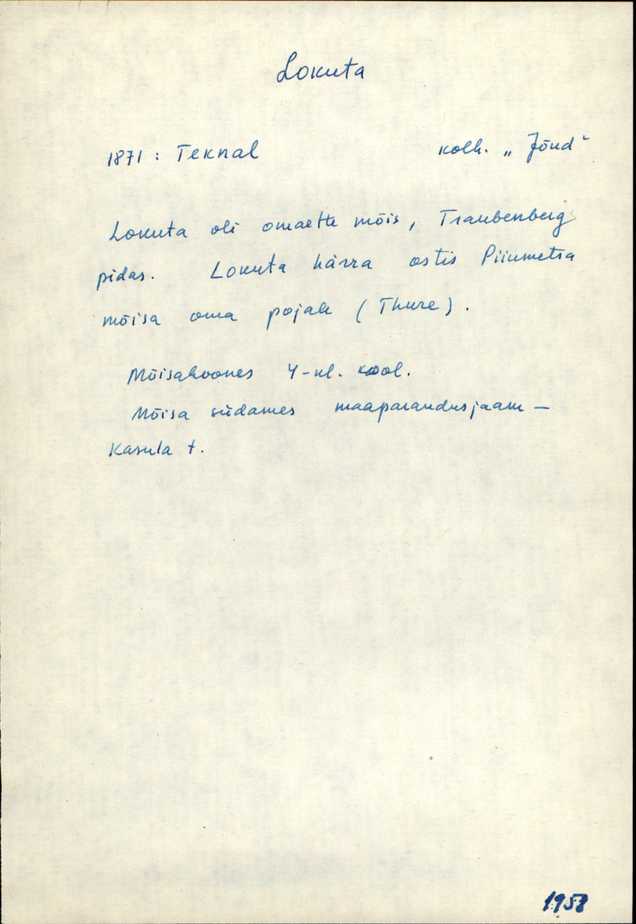 Lokuta
1871 : Teknal kolh. „Jõud"
Lokuta oli omaette mõis, Traubenberg
pidas. Lokuta härra ostis Piiumetsa
mõisa oma pojale (Thure).
Mõisahoones 4-kl. kool.
Mõisa südames maaparandusjaam –
Kasula t.
1958